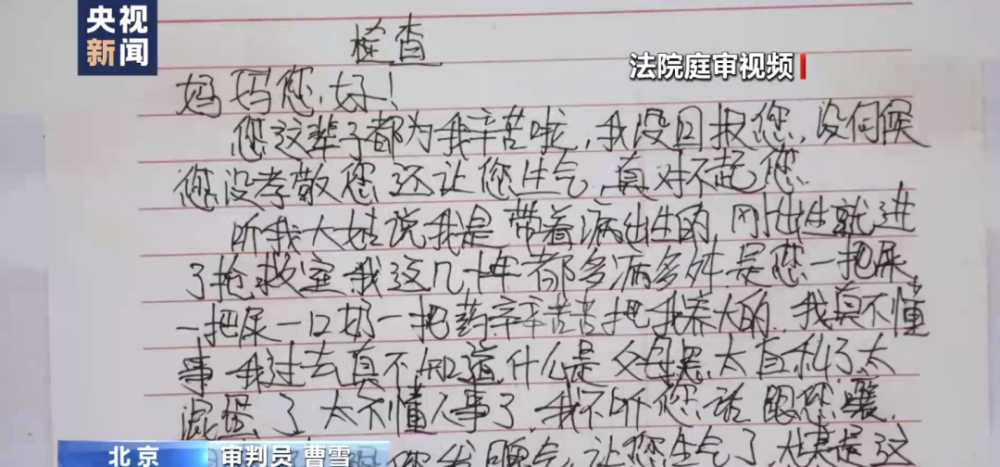 央视
新闻
法院庭审视频
检查
妈妈您好！
您这辈子都为我辛苦啦，我没回报您，没伺候
您没孝敬您还让您生气，真对不起您
听我大姑说我是带着病出生的，刚出生就进
了抢救室，我这几十年都多病多灾，是您一把屎
一把尿一口奶一把药辛辛苦苦把我养大的，我真不懂
事，我过去真不知道什么是父母恩，太自私了，太
混蛋了，太不懂人事了，我不听您话，跟您嚷
您发脾气，让您生气了，
北京
审判员 曹雪